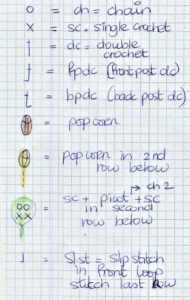 o = ch = chain
x = sc = single crochet
= dc = double
crochet
= fpdc (front post dc)
= bpdc (back post dc)
= popcorn
= popcorn in 2nd
row below
→ ch 2
= sc + picot + sc
in second
row below
= Slst = slip stitch
in front loop
stitch last row